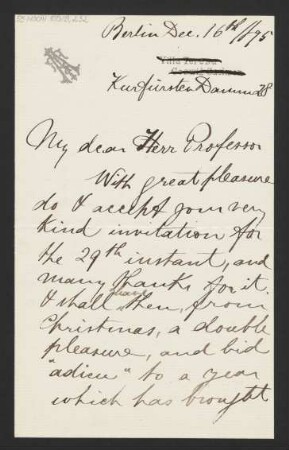 Berlin Dec. 16th/95
Kurfürsten Damm
My dear Herr Professor
With great pleasure
do I accept your very
kind invitation for
the 29th instant, and
many thanks for it.
I shall then, from
Christmas, a double
pleasure, and bid
"adieu" to a year
which has brought